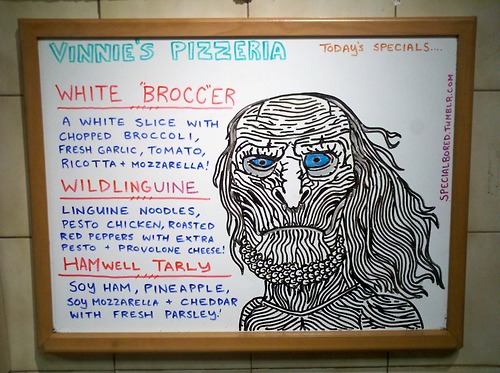 VINNIE'S PIZZERIA
TODAY'S SPECIALS....
WHITE "BROCC"ER
A WHITE SLICE WITH
CHOPPED BROCCOLI,
FRESH GARLIC, TOMATO,
RICOTTA + MOZZARELLA!
WILDLINGUINE
LINGUINE NOODLES,
PESTO CHICKEN, ROASTED
RED PEPPERS WITH EXTRA
PESTO + PROVOLONE CHEESE!
HAMWELL TARLY
SOY HAM, PINEAPPLE,
SOY MOZZARELLA + CHEDDAR
WITH FRESH PARSLEY!
SPECIALBORED.TUMBLR.COM